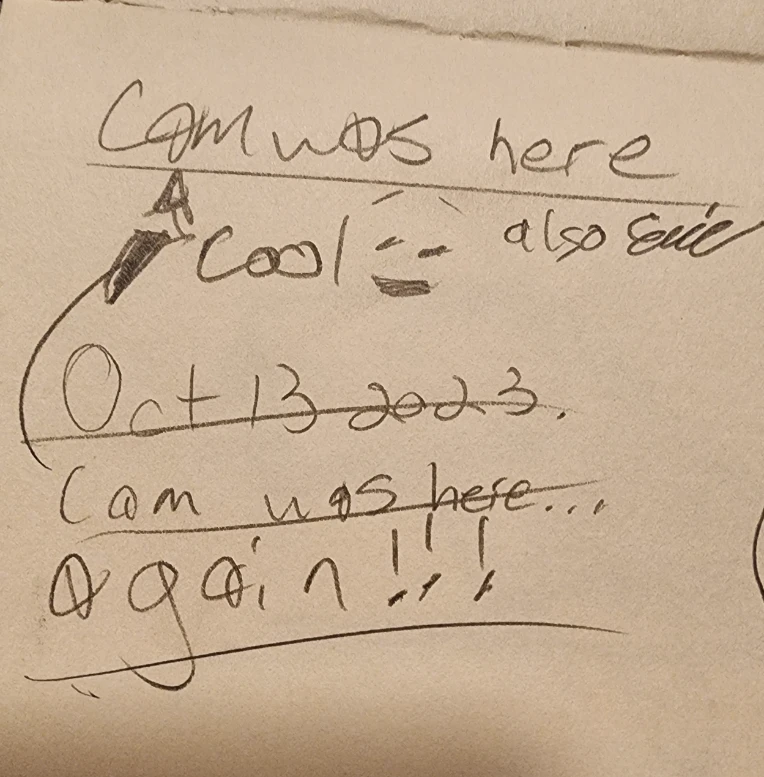 Cam was here
Cool also
Oct 13 2023.
Cam was here...
again!!!